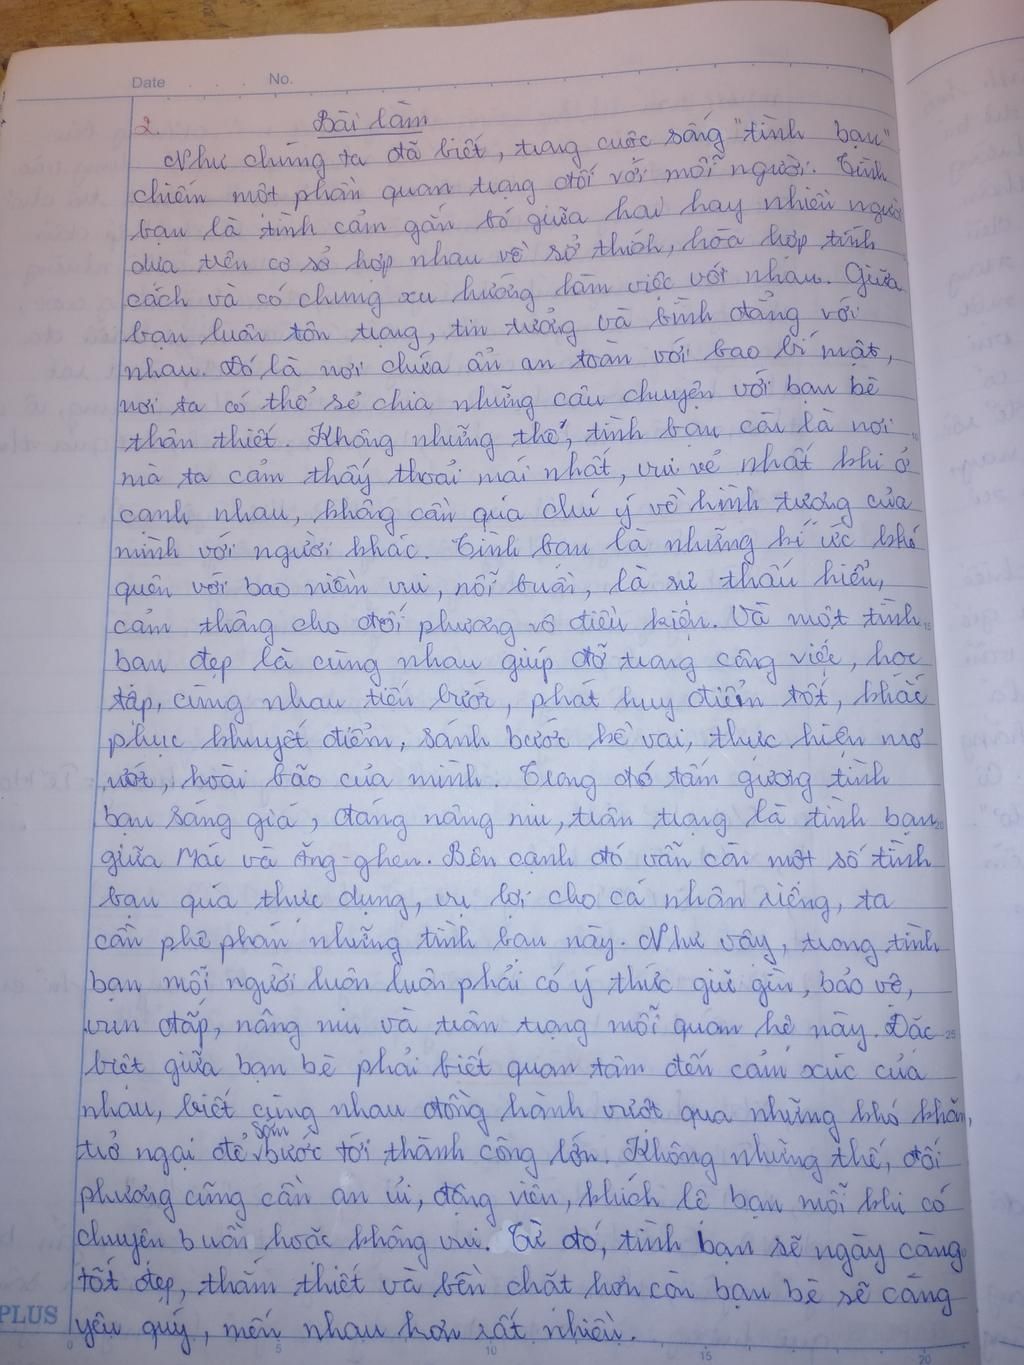 Date No.
2. Bài làm
Như chúng ta đã biết, trong cuộc sống "tình bạn"
chiếm một phần quan trọng đối với mỗi người. Tình
bạn là tình cảm gắn bó giữa hai hay nhiều người
dựa trên cơ sở hợp nhau về sở thích, hòa hợp tính
cách và có chung xu hướng làm việc với nhau. Giữa
bạn luôn tôn trọng, tin tưởng và bình đẳng với
nhau. Đó là nơi chứa ẩn an toàn với bao bí mật,
nơi ta có thể sẻ chia những câu chuyện với bạn bè
thân thiết. Không những thế, tình bạn còn là nơi
mà ta cảm thấy thoải mái nhất, vui vẻ nhất khi ở
cạnh nhau, không cần quá chú ý về hình tượng của
mình với người khác. Tình bạn là những kí ức khó
quên với bao niềm vui, nỗi buồn, là sự thấu hiểu,
cảm thông cho đối phương vô điều kiện. Và một tình
bạn đẹp là cùng nhau giúp đỡ trong công việc, học
tập, cùng nhau tiến bước, phát huy điểm tốt, khắc
phục khuyết điểm, sánh bước kề vai, thực hiện mơ
ước, hoài bão của mình. Trong đó tấm gương tình
bạn sáng giá, đáng nâng niu, trân trọng là tình bạn
giữa Mác và Ăng-ghen. Bên cạnh đó vẫn còn một số tình
bạn quá thực dụng, vụ lợi cho cá nhân riêng, ta
cần phê phán những tình bạn này. Như vậy, trong tình
bạn mỗi người luôn luôn phải có ý thức giữ gìn, bảo vệ,
vun đắp, nâng niu và trân trọng mối quan hệ này. Đặc
biệt giữa bạn bè phải biết quan tâm đến cảm xúc của
nhau, biết cùng nhau đồng hành vượt qua những khó khăn,
trở ngại để sớm bước tới thành công lớn. Không những thế, đối
phương cũng cần an ủi, động viên, khích lệ bạn mỗi khi có
chuyện buồn hoặc không vui. Từ đó, tình bạn sẽ ngày càng
tốt đẹp, thắm thiết và bền chặt hơn còn bạn bè sẽ càng
yêu quý, mến nhau hơn rất nhiều.
PLUS